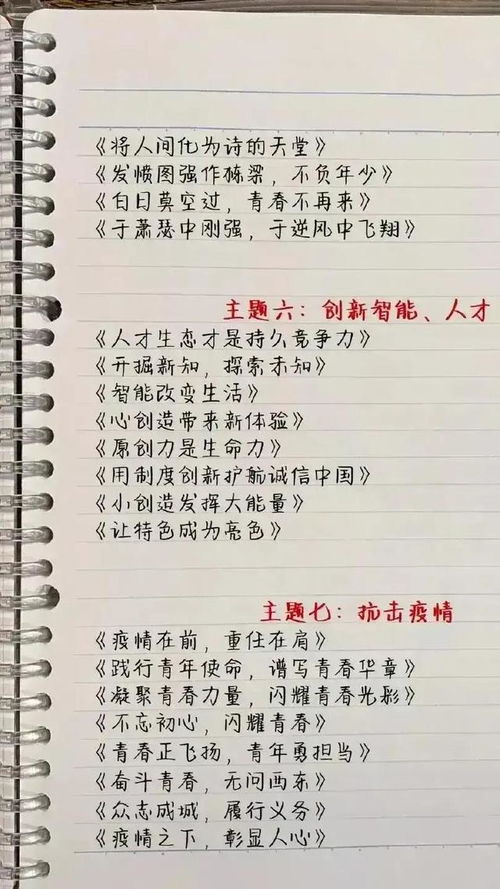 《将人间化为诗的天堂》
《发愤图强作栋梁，不负年少》
《白日莫空过，青春不再来》
《于萧瑟中刚强，于逆风中飞翔》
主题六：创新智能、人才
《人才生态才是持久竞争力》
《开掘新知，探索未知》
《智能改变生活》
《心创造带来新体验》
《原创力是生命力》
《用制度创新护航诚信中国》
《小创造发挥大能量》
《让特色成为亮色》
主题七：抗击疫情
《疫情在前，重住在肩》
《践行青年使命，谱写青春华章》
《凝聚青春力量，闪耀青春光彩》
《不忘初心，闪耀青春》
《青春正飞扬，青年勇担当》
《奋斗青春，无问西东》
《众志成城，履行义务》
《疫情之下，彰显人心》